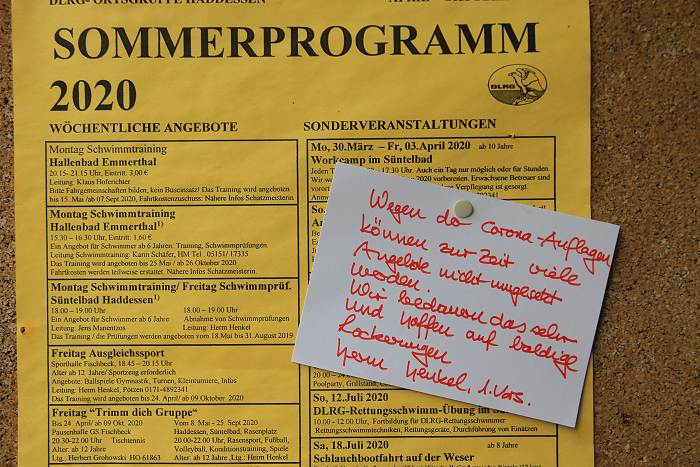 DLRG- ORTSGRUPPE HADDESSEN
APRIL -
SOMMERPROGRAMM
2020
DLRG
WÖCHENTLICHE ANGEBOTE
Montag Schwimmtraining
Hallenbad Emmerthal
20.15- 21.15 Uhr, Eintritt: 3,00 €
Leitung: Klaus Hoferichter
Bitte Fahrgemeinschaften bilden, kein Buseinsatz! Das Training wird angeboten
bis 15. Mai /ab 07.Sept.2020, Fahrtkostenzuschuss: Nähere Infos Schatzmeisterin
Montag Schwimmtraining
Hallenbad Emmerthal¹⁾
15.30 – 16.30 Uhr, Eintritt: 1,60 €
Ein Angebot für Schwimmer ab 6 Jahren: Training, Schwimmprüfungen.
Leitung Schwimmtraining: Karin Schäfer, HM Tel : 05151/ 17335
Das Training wird angeboten bis 25 Mai / ab 26 Oktober 2020
Fahrtkosten werden teilweise erstattet. Nähere Infos Schatzmeisterin.
Montag Schwimmtraining/ Freitag Schwimmprüf.
Süntelbad Haddessen¹⁾
18.00 – 19.00 Uhr 18.00 – 19.00 Uhr
Ein Angebot für Schwimmer ab 6 Jahre Abnahme von Schwimmprüfungen
Leitung: Jens Manentzos Leitung: Herm Henkel
Das Training / die Prüfungen werden angeboten vom 18.Mai bis 31 August 2019
Freitag Ausgleichssport
Sporthalle Fischbeck, 18.45 – 20.15 Uhr
Alter ab 12 Jahre/ Sportzeug erforderlich
Angebote: Ballspiele Gymnastik, Turnen, Kleinturniere, Infos
Leitung: Herm Henkel, Pötzen 0171-4892341
Das Training wird angeboten bis 24. April/ ab 09.Oktober 2020
Freitag "Trimm dich Gruppe"
Bis 24. April/ ab 09 Okt. 2020 Vom 8. Mai - 25. Sept 2020
Pausenhalle GS Fischbeck Haddessen, Süntelbad, Rasenplatz
20.30-22.00 Uhr Tischtennis 20.00-22.00 Uhr, Rasensport, Fußball,
Alter: ab 12 Jahre Volleyball, Konditionstraining, Spiele
Ltg.: Herbert Grohowski HO 61863 Alter: ab 12 Jahre ,Ltg.: Herm Henkel
SONDERVERANSTALTUNGEN
Mo, 30.März – Fr, 03.April 2020 ab 10 Jahre
Workcamp im Süntelbad
17.30 Uhr. Auch ein Tag möglich oder für Stunden.
2020 vorbereiten. Erwachsene Betreuer sind
Verpflegung ist gesorgt.
Wegen der Corona-Auflagen
können zur Zeit viele
Angebote nicht umgesetzt
werden.
Wir bedauern das sehr
und hoffen auf baldige
Lockerungen
Herm Henkel, 1.Vors.
Poolparty, Grillstand,
So, 12.Juli 2020
DLRG-Rettungsschwimm-Übung im
10.00 - 12.00 Uhr, Fortbildung für DLRG-Rettungsschwimmer
Rettungsschwimmtechniken, Rettungsgeräte, Durchführung von Einsätzen
Sa, 18.Juli 2020 ab 8 Jahre
Schlauchbootfahrt auf der Weser